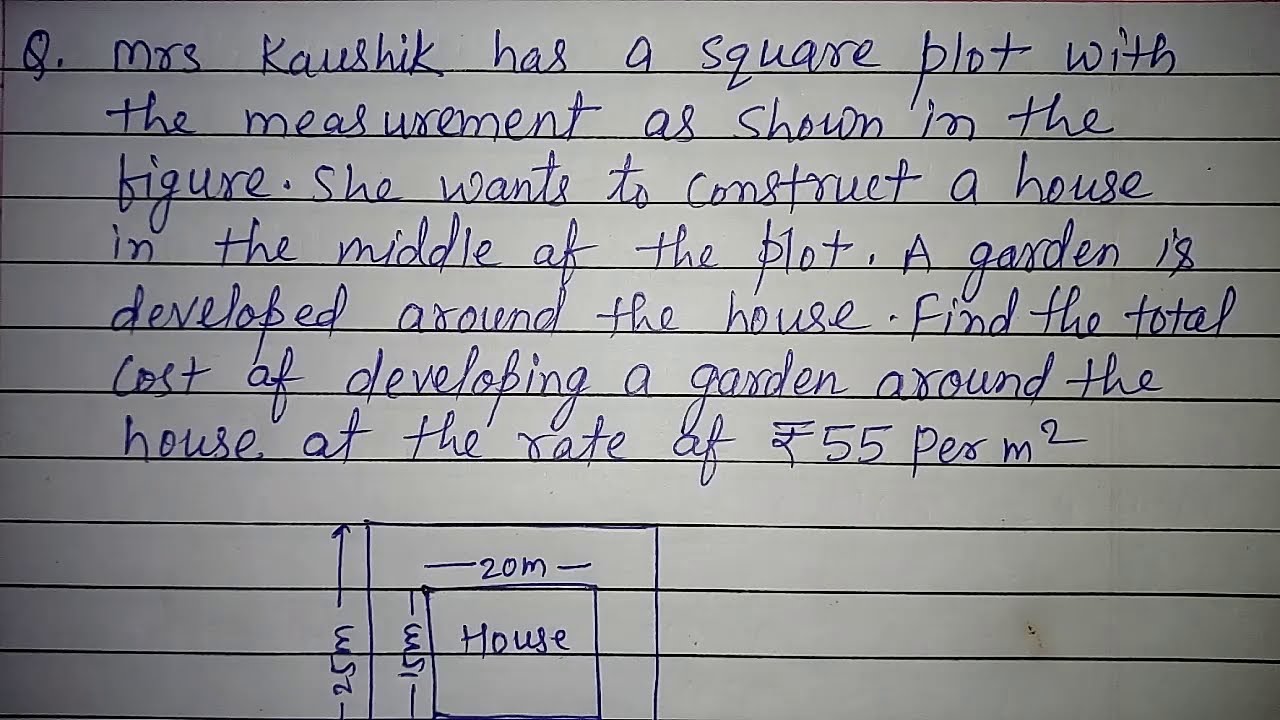 Q. Mrs Kaushik has a square plot with
the measurement as shown in the
figure. She wants to construct a house
in the middle of the plot. A garden is
developed around the house. Find the total
cost of developing a garden around the
house at the rate of ₹55 Per m²
20m
House
25m
15m